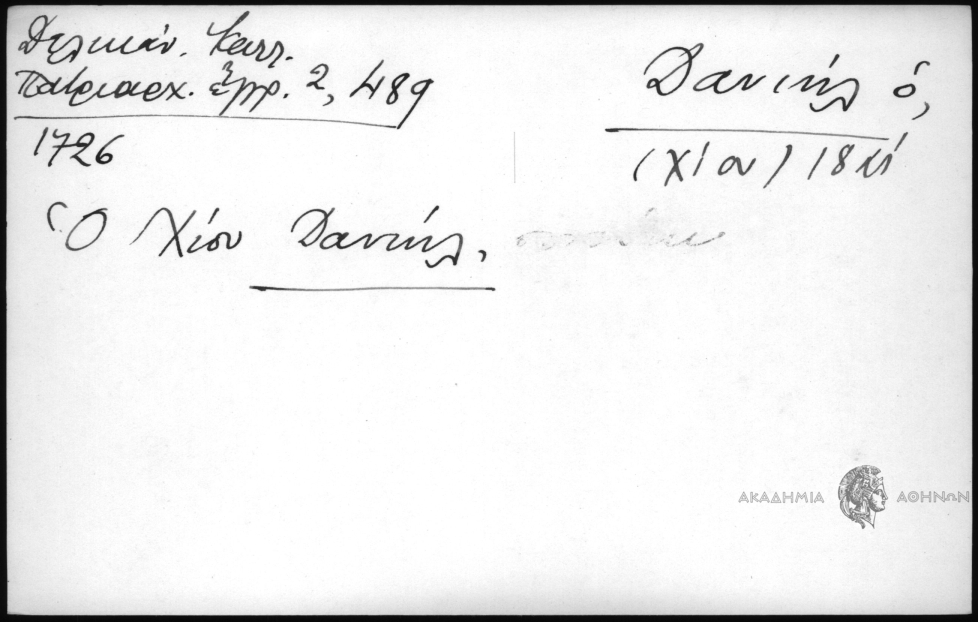 Δελικάν. Κατλ.
Πατριαρχ. Ἐγγρ. 2, 489
1726
Δανιήλ ὁ,
(Χίου) 18 αἰ
Ὁ Χίου Δανιήλ,
ΑΚΑΔΗΜΙΑ ΑΘΗΝΩΝ